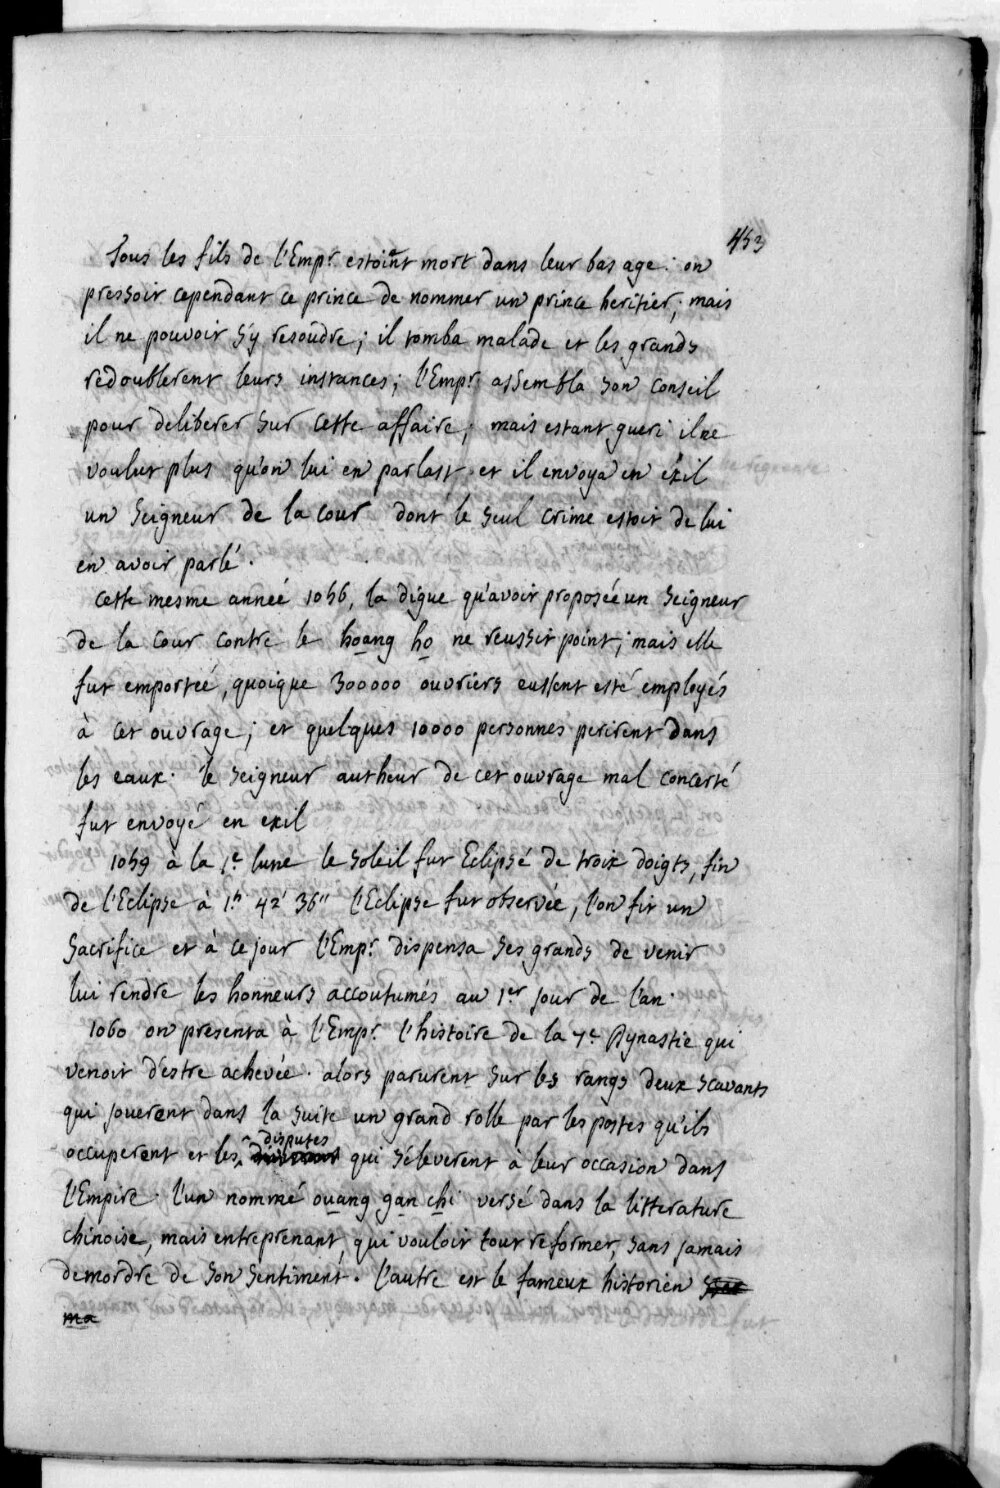 453
Tous les fils de l'Empr. estoint mort dans leur bas age. on
pressoit cependant ce prince de nommer un prince heritier, mais
il ne pouvoit s'y resoudre; il tomba malade et les grands
redoublerent leurs instances; l'Empr. assembla son conseil
pour deliberer sur cette affaire, mais estant gueri il ne
voulut plus qu'on lui en parlast et il envoya en éxil
un seigneur de la cour dont le seul crime estoit de lui
en avoir parlé.
cette mesme année 1056, la digue qu'avoit proposée un seigneur
de la cour contre le hoang ho ne reussit point; mais elle
fut emportée, quoique 300000 ouvriers eussent esté employés
à cet ouvrage; et quelques 10000 personnes perirent dans
les eaux. le seigneur autheur de cet ouvrage mal concerté
fut envoyé en exil
1059 à la 1e lune le soleil fut Eclipsé de troix doigts, fin
de l'Eclipse à 1h 42' 36" l'Eclipse fut observée, l'on fit un
sacrifice et à ce jour l'Empr. dispensa ses grands de venir
lui rendre les honneurs accoutumés au 1er jour de l'an.
1060 on presenta à l'Empr. l'histoire de la 7e Dynastie qui
venoit d'estre achevée. alors parurent sur les rangs deux scavants
qui jouerent dans la suite un grand rolle par les postes qu'ils
occuperent et les disputes qui s'éleverent à leur occasion dans
l'Empire. l'un nommé ouang gan chi versé dans la litterature
chinoise, mais entreprenant, qui vouloit tout reformer, sans jamais
demordre de son sentiment. l'autre est le fameux historien sse
ma